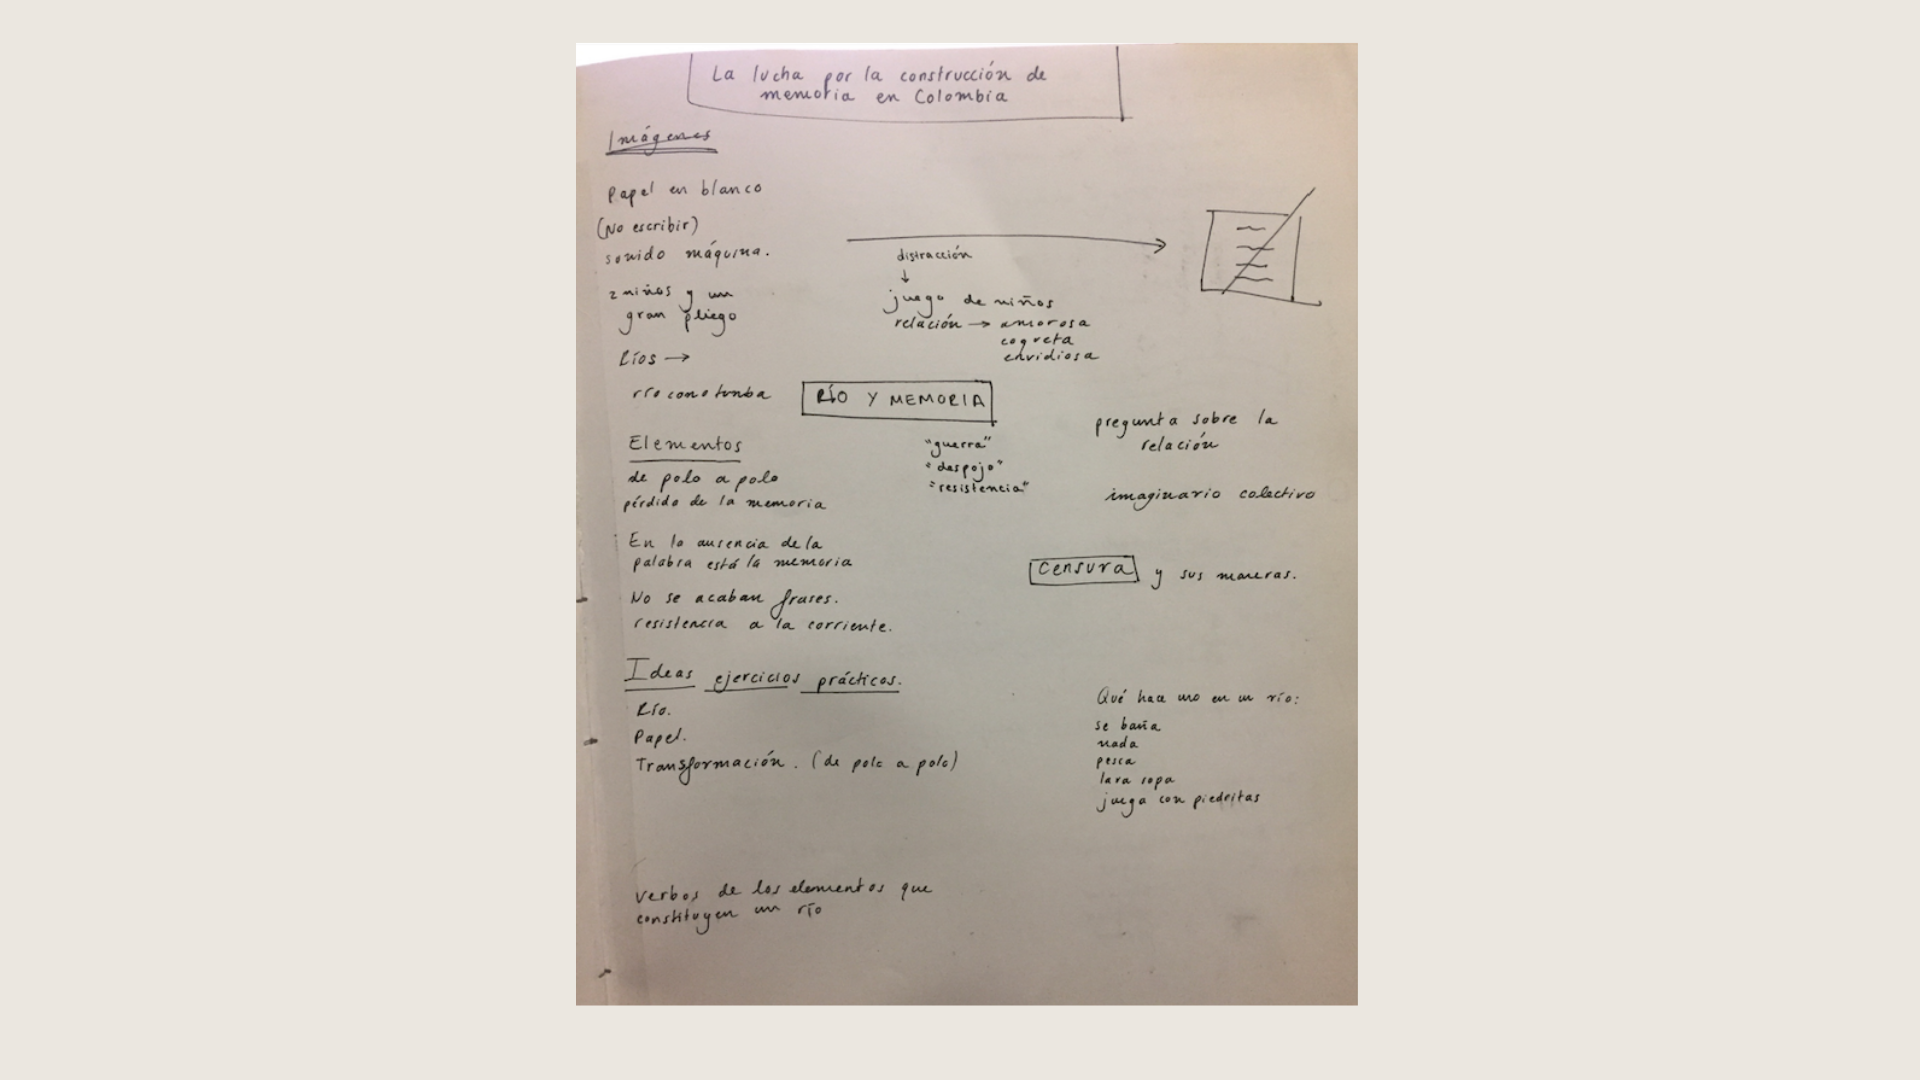 La lucha por la construcción de
memoria en Colombia
Imágenes
Papel en blanco
(No escribir)
sonido máquina.
2 niños y un
gran pliego
Ríos →
río como tumba
distracción
↓
juego de niños
relación → amorosa
coqueta
envidiosa
RÍO Y MEMORIA
"guerra"
"despojo"
"resistencia"
pregunta sobre la
relación
imaginario colectivo
Elementos
de polo a polo
pérdida de la memoria
En la ausencia de la
palabra está la memoria
No se acaban frases.
resistencia a la corriente.
Censura y sus maneras.
Ideas ejercicios prácticos.
Río.
Papel.
Transformación. (de polo a polo)
Qué hace uno en un río:
se baña
nada
pesca
lava ropa
juega con piedritas
verbos de los elementos que
constituyen un río